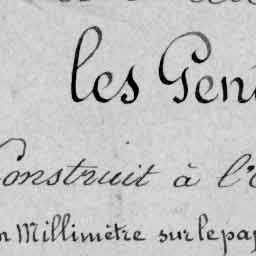 les Gen
Construit à l'
Millimètre sur le pap